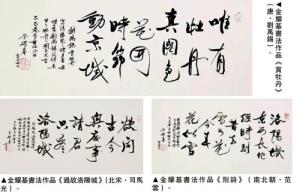 唯有
牡丹
真國色
花開
時節
動京城
金耀基
▲金耀基書法作品《賞牡丹》
(唐·劉禹錫)。
欲問
古今
興廢事
請君
只看
洛陽城
▲金耀基書法作品《過故洛陽城》(北宋·司馬
光)。
洛陽城
東西長作
經時別
昔去
雪如花
今來
花似雪
▲金耀基書法作品《別詩》(南北朝·范
雲)。